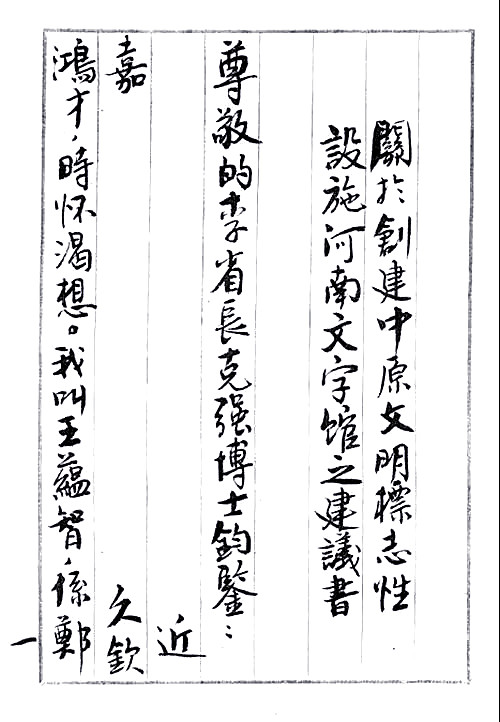 關於創建中原文明標志性
設施河南文字館之建議書
尊敬的李省長克强博士鈞鑒：
近
嘉 久欽
鴻才，時怀渴想。我叫王蘊智，係鄭
一